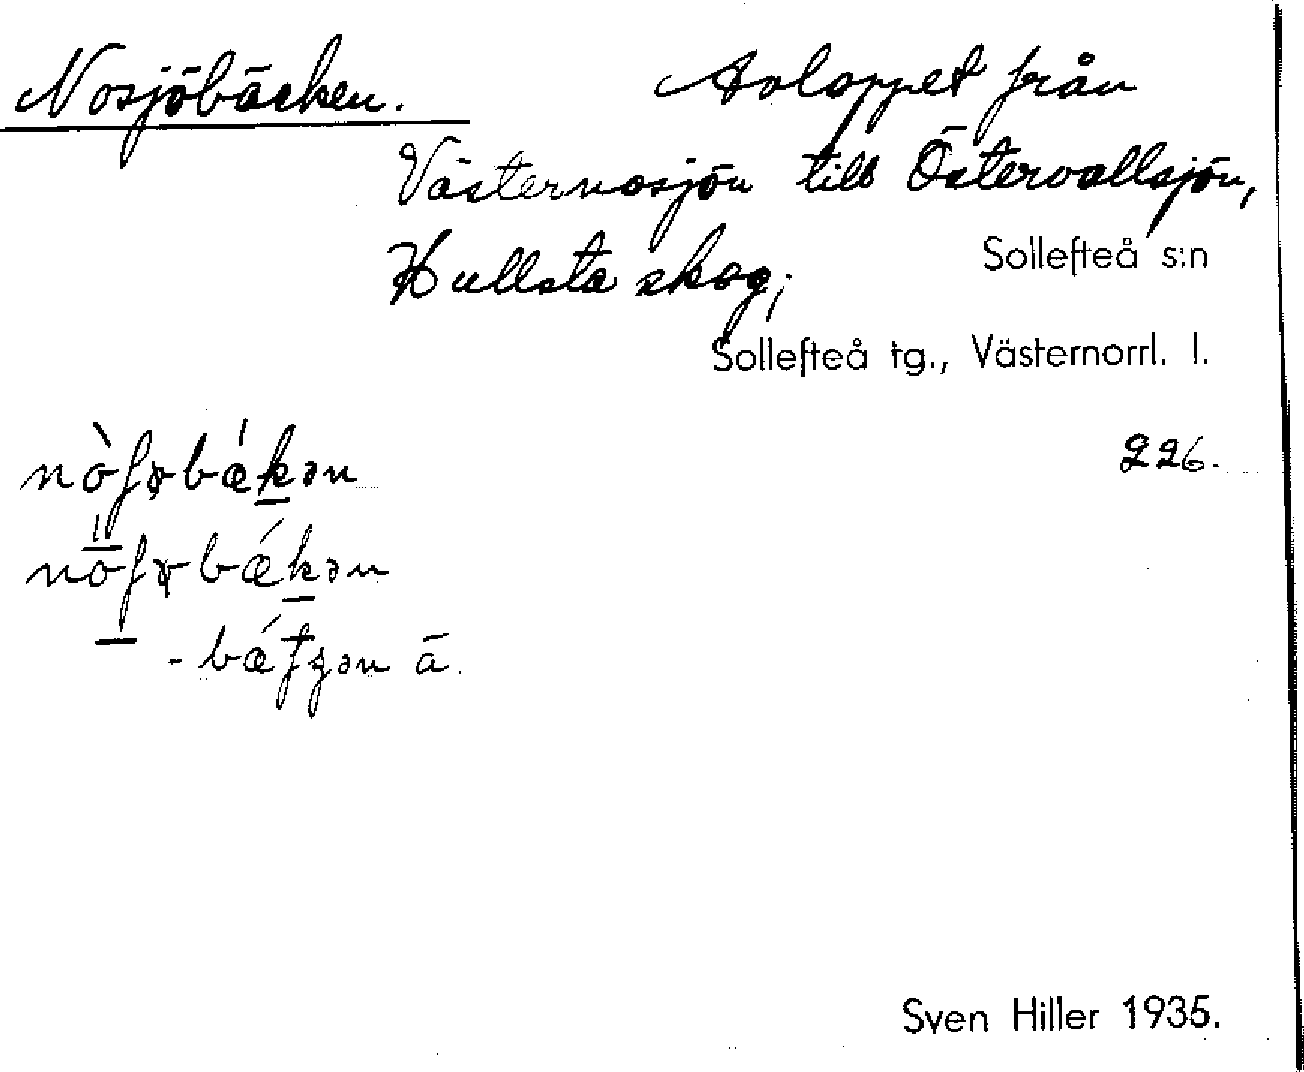 Nosjöbäcken. Avloppet från
Västernosjön till Östervallsjön,
Hullsta skog;
Sollefteå s:n
Sollefteå tg., Västernorrl. l.
226.
- ä.
Sven Hiller 1935.